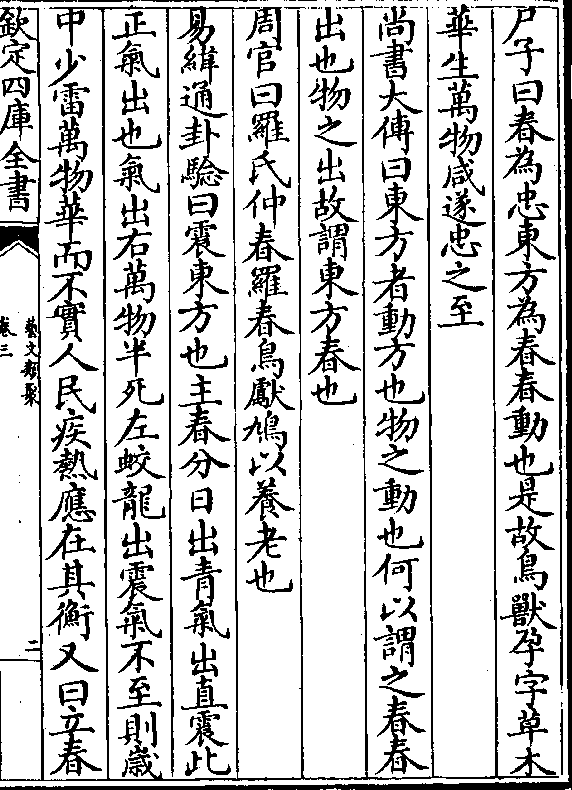 尸子曰春為忠東方為春春動也是故鳥獸孕字草木
華生萬物咸遂忠之至
尚書大傳曰東方者動方也物之動也何以謂之春春
出也物之出故謂東方春也
周官曰羅氏仲春羅春鳥獻鳩以養老也
易緯通卦驗曰震東方也主春分日出青氣出直震此
正氣出也氣出右萬物半死左蛟龍出震氣不至則歲
中少雷萬物華而不實人民疾熱應在其衝又曰立春
欽定四庫全書
藝文類聚
卷三
二